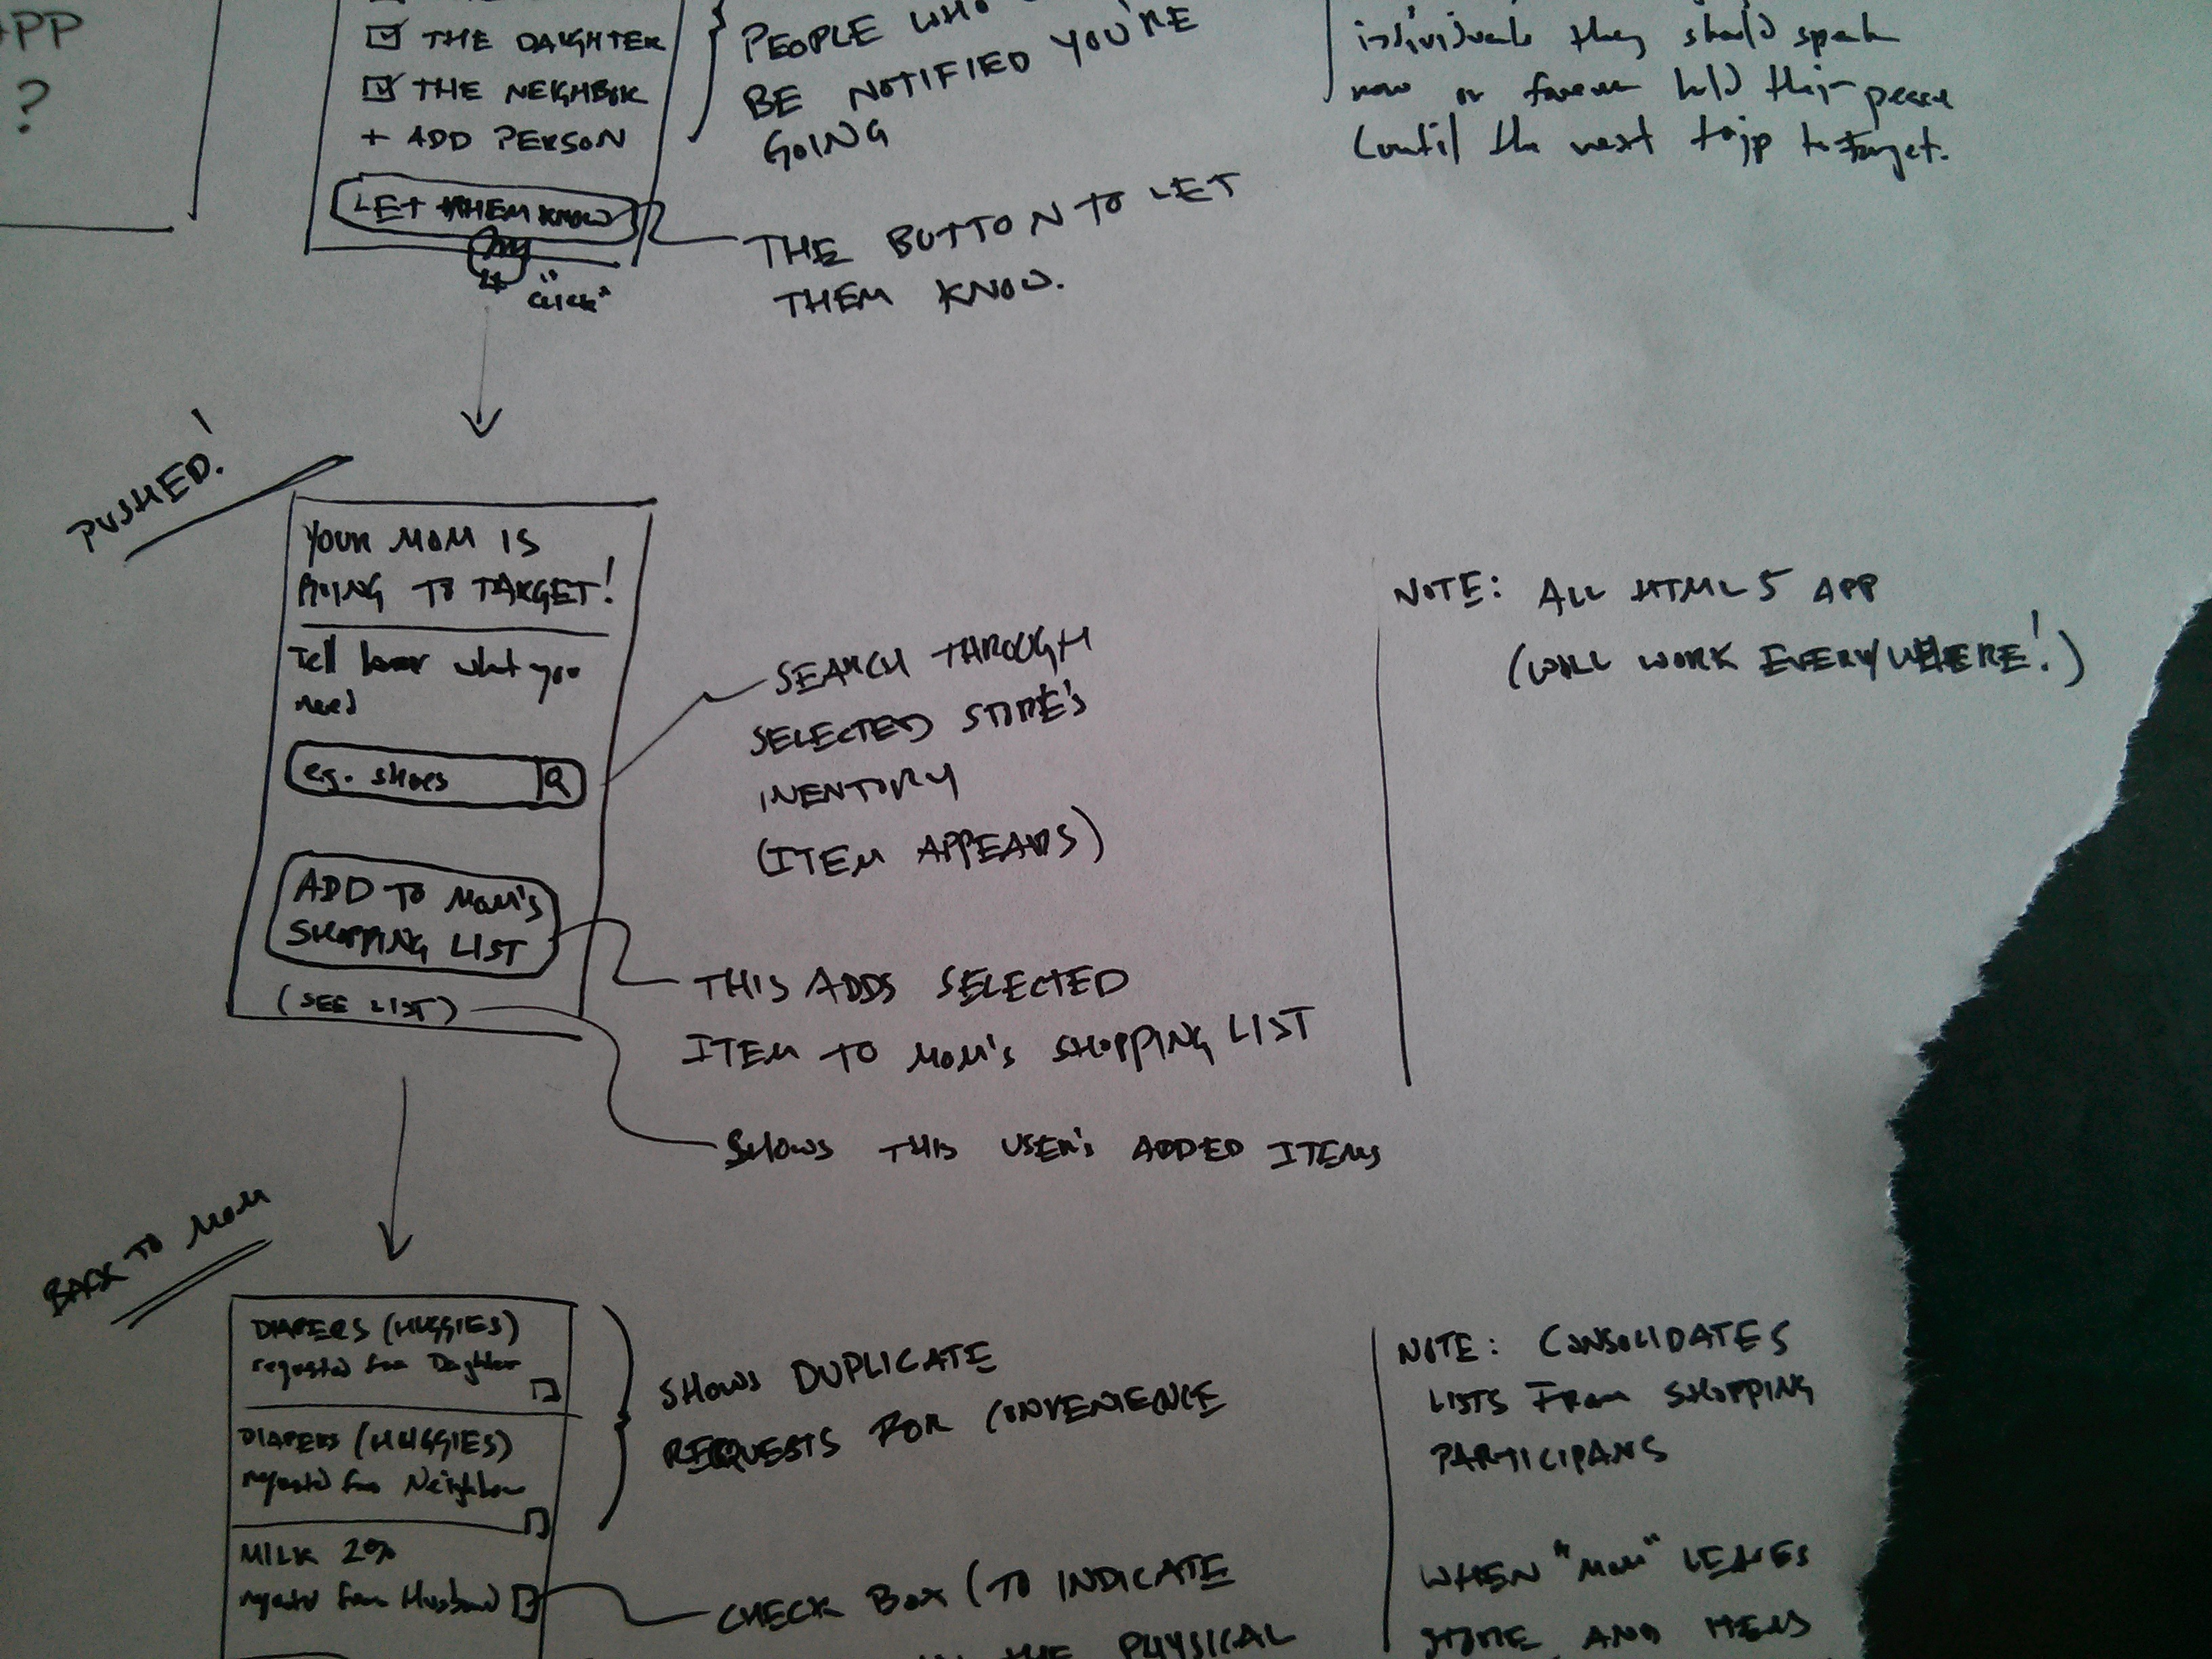 APP
?
THE DAUGHTER
THE NEIGHBOR
+ ADD PERSON
LET THEM KNOW
"CLICK"
PEOPLE WHO
BE NOTIFIED YOU'RE
GOING
THE BUTTON TO LET
THEM KNOW.
individuals they should speak
now or forever hold their peace
(until the next tripp to target.
PUSHED!
YOUR MOM IS
GOING TO TARGET!
Tell her what you
need
eg. shoes
ADD TO MOM'S
SHOPPING LIST
(SEE LIST)
SEARCH THROUGH
SELECTED STORE'S
INENTORY
(ITEM APPEARS)
THIS ADDS SELECTED
ITEM TO MOM'S SHOPPING LIST
SHOWS THIS USER'S ADDED ITEMS
NOTE: ALL HTML5 APP
(WILL WORK EVERYWHERE!)
BACK TO MOM
DIAPERS (HUGGIES)
requested from Daughter
DIAPERS (HUGGIES)
requested from Neighbor
MILK 2%
requested from Husband
SHOWS DUPLICATE
REQUESTS FOR CONVENIENCE
CHECK BOX (TO INDICATE
THE PHYSICAL
NOTE: CONSOLIDATES
LISTS FROM SHOPPING
PARTICIPANS
WHEN "MOM" LEAVES
STORE AND ITEMS